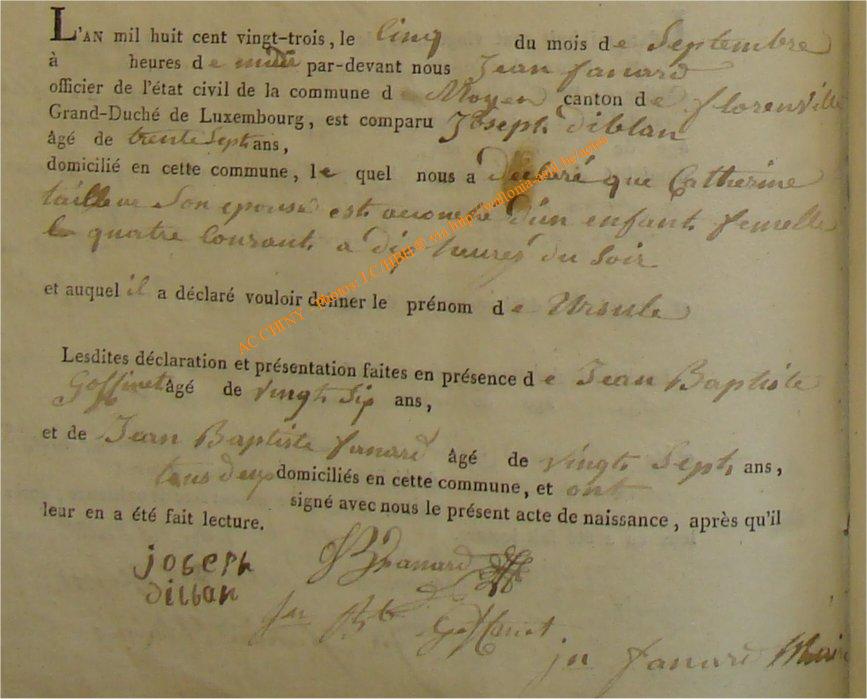 L'AN mil huit cent vingt-trois, le Cinq du mois de Septembre
à heures de midi par-devant nous Jean fanard
officier de l'état civil de la commune de Moyen canton de florenville
Grand-Duché de Luxembourg, est comparu Joseph diblan
âgé de trente Sept ans,
domicilié en cette commune, le quel nous a déclaré que Catherine
tailleur Son epouse est acouché d'un enfant femelle
le quatre Courant a dix heures du Soir
et auquel il a déclaré vouloir donner le prénom de Ursule
Lesdites déclaration et présentation faites en présence de Jean Baptiste
Goffinet âgé de vingt Six ans,
et de Jean Baptiste fanard âgé de vingt Sept ans,
tous deux domiciliés en cette commune, et ont
signé avec nous le présent acte de naissance, après qu'il
leur en a été fait lecture.
joseph
dilban
fanard
Goffinet
jn fanard Maire
AC CHINY - Photos: J.C